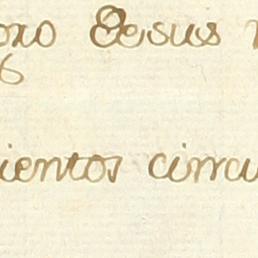 oxo Jesus
ientos circu